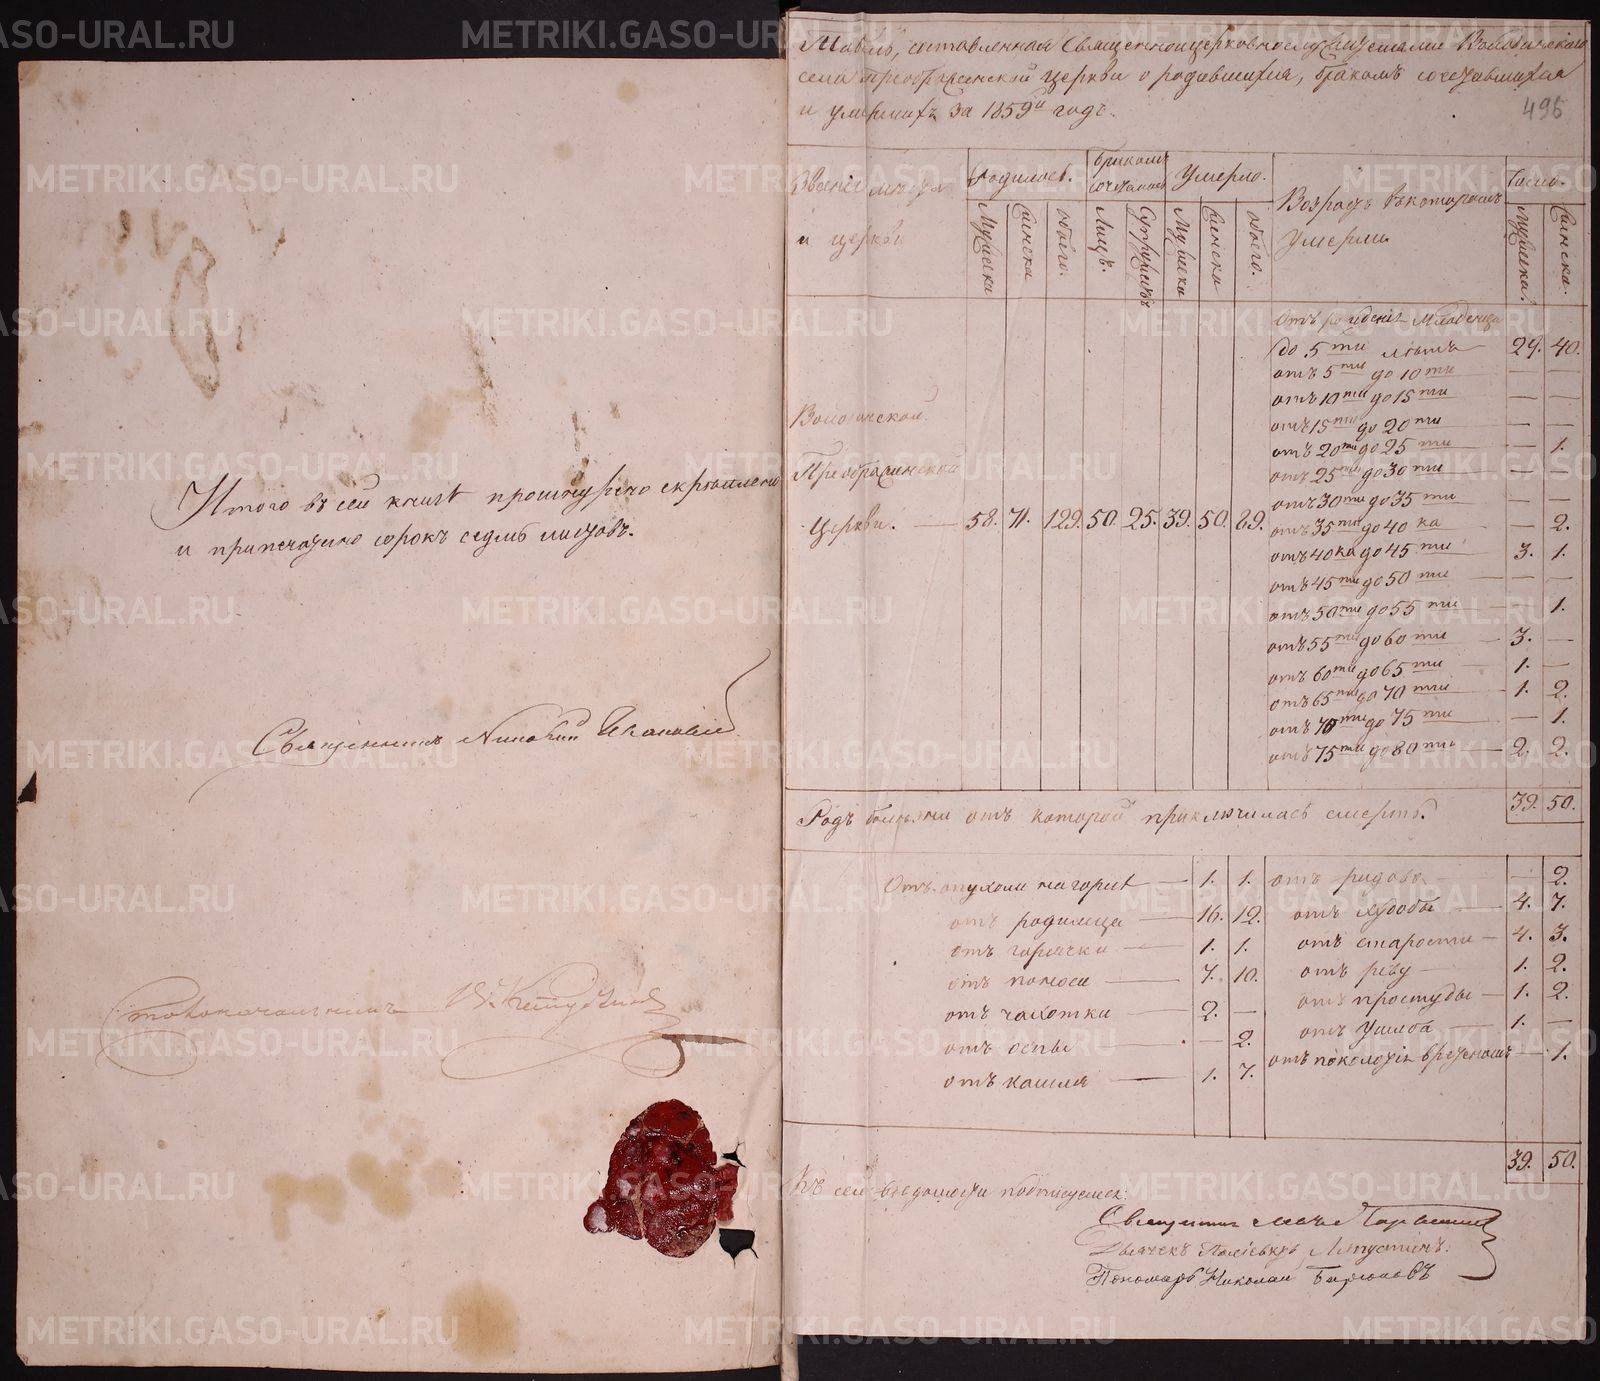 Итого въ сей книгѣ прошнуровано скрѣплено
и припечатано сорокъ седмь листовъ.
Священникъ
Столоначальникъ
Табль, составленная Священноцерковнослужителями
села Преображенской церкви о родившихся, бракомъ сочетавшихся
и умершихъ за 1859й годъ.
496
Званіе мѣста
и церкви
Родилось.
Мужеска
Женска
обоего.
бракомъ
сочеталось
Лицъ.
Супружствъ
Умерло.
Мужеска
Женска
обоего.
Возрастъ въ которомъ
умерли
Число.
Мужеска.
Женска.
Преображенской
Церкви. — 58. 71. 129. 50. 25. 39. 50. 89.
отъ рожденія младенца
до 5ти лѣтъ 27. 40.
отъ 5ти до 10ти — —
отъ 10ти до 15ти — —
отъ 15ти до 20ти — —
отъ 20ти до 25ти — 1.
отъ 25ти до 30ти — —
отъ 30ти до 35ти — —
отъ 35ти до 40ка — 2.
отъ 40ка до 45ти 3. 1.
отъ 45ти до 50ти — —
отъ 50ти до 55ти — 1.
отъ 55ти до 60ти — 3. —
отъ 60ти до 65ти — 1. —
отъ 65ти до 70ти — 1. 2.
отъ 70ти до 75ти — 1.
отъ 75ти до 80ти — 2. 2.
39. 50.
Родъ болѣзни отъ которой приключилась смерть.
Отъ опухоли на горлѣ — 1. 1.
отъ родимца — 16. 12.
отъ горячки — 1. 1.
отъ поноса — 7. 10.
отъ чахотки — 2. —
отъ оспы — — 2.
отъ кашля — 1. 7.
отъ родовъ — — 2.
отъ худобы — 4. 7.
отъ старости — 4. 3.
отъ рѣзу — 1. 2.
отъ простуды — 1. 2.
отъ ушиба — 1. —
— 1.
39. 50.
Къ сей вѣдомости подписуемся:
Священникъ
Дьячекъ
Пономарь Николай
METRIKI.GASO-URAL.RU